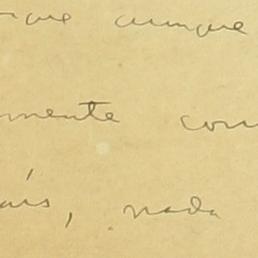 que aunque
mente com
ais, nada